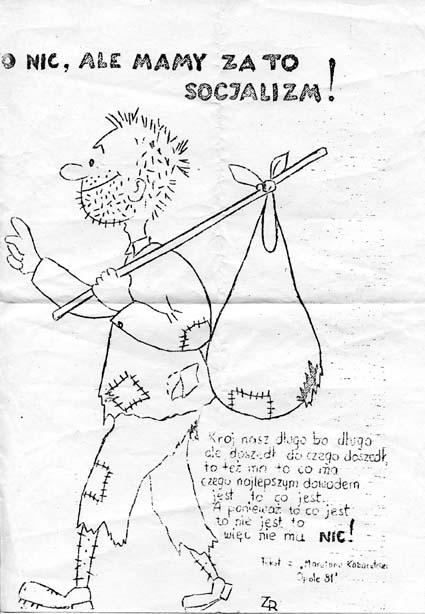 O NIC, ALE MAMY ZA TO
SOCJALIZM!
Kroj nasz długo bo długo
ale doszedł do czego doszedł,
to też ma to co ma
czego najlepszym dowodem
jest to co jest.
A ponieważ to co jest
to nie jest to
więc nie ma NIC!
Tekst z „Maratonu
Opole 81"
ZR